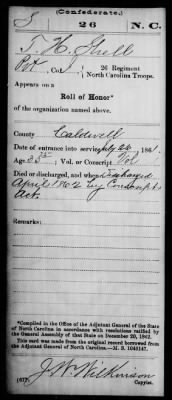 (Confederate.)
S 26 N. C.
T. H. Shell
Pvt, Co. I, 26 Regiment
North Carolina Troops.
Appears on a
Roll of Honor*
of the organization named above.
County Caldwell
Date of entrance into service July 26, 1861.
Age 35; Vol. or Conscript Vol
Died or discharged, and when Discharged
April 1862 by Conscript
Act.
Remarks:
*Compiled in the Office of the Adjutant General of the State
of North Carolina in accordance with resolutions ratified by
the General Assembly of that State on December 20, 1862.
This card was made from the original record borrowed from
the Adjutant General of North Carolina—M. S. 1048147.
J. W. Wilkinson
(677) Copyist.